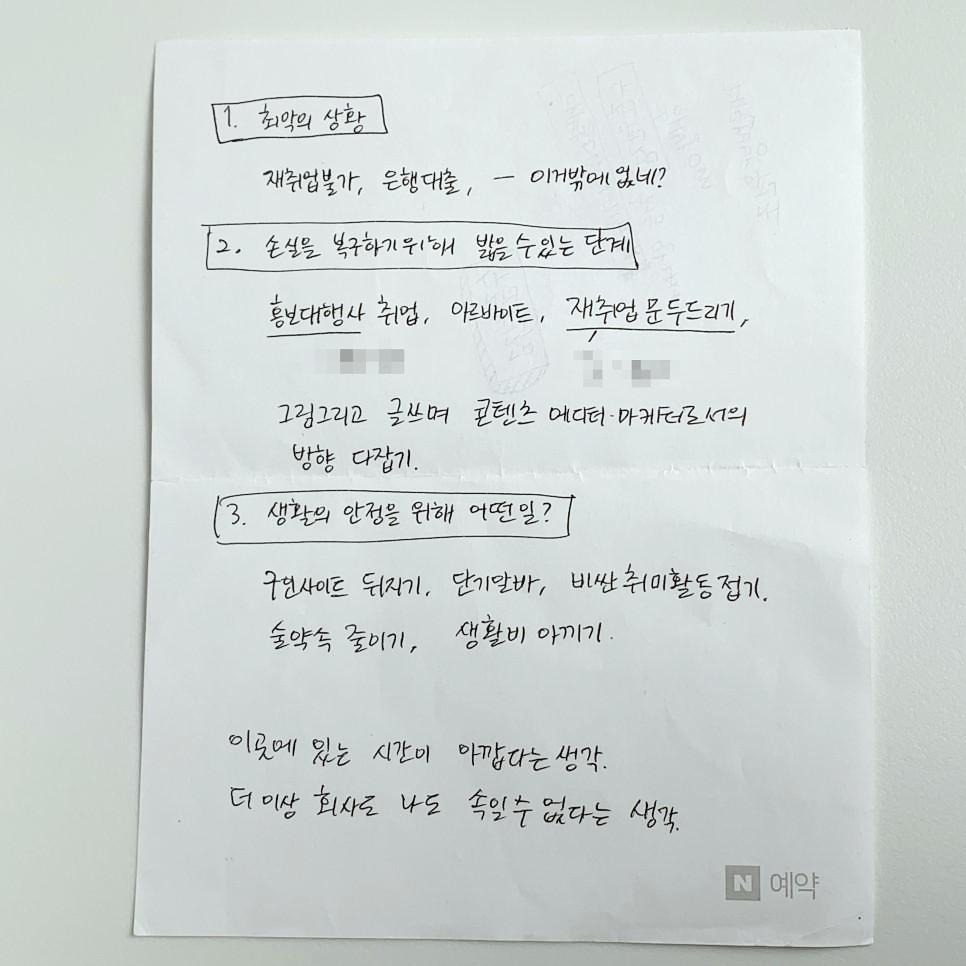 1. 최악의 상황
재취업불가, 은행대출, — 이거밖에 없네?
2. 손실을 복구하기위해 밟을수있는 단계
홍보대행사 취업, 아르바이트, 재취업 문두드리기,
그림그리고 글쓰며 콘텐츠 에디터·마케터로서의
방향 다잡기.
3. 생활의 안정을 위해 어떤일?
구인사이트 뒤지기, 단기알바, 비싼취미활동접기.
술약속 줄이기, 생활비 아끼기.
이곳에 있는 시간이 아깝다는생각.
더이상 회사도 나도 속일수 없다는 생각.
N 예약